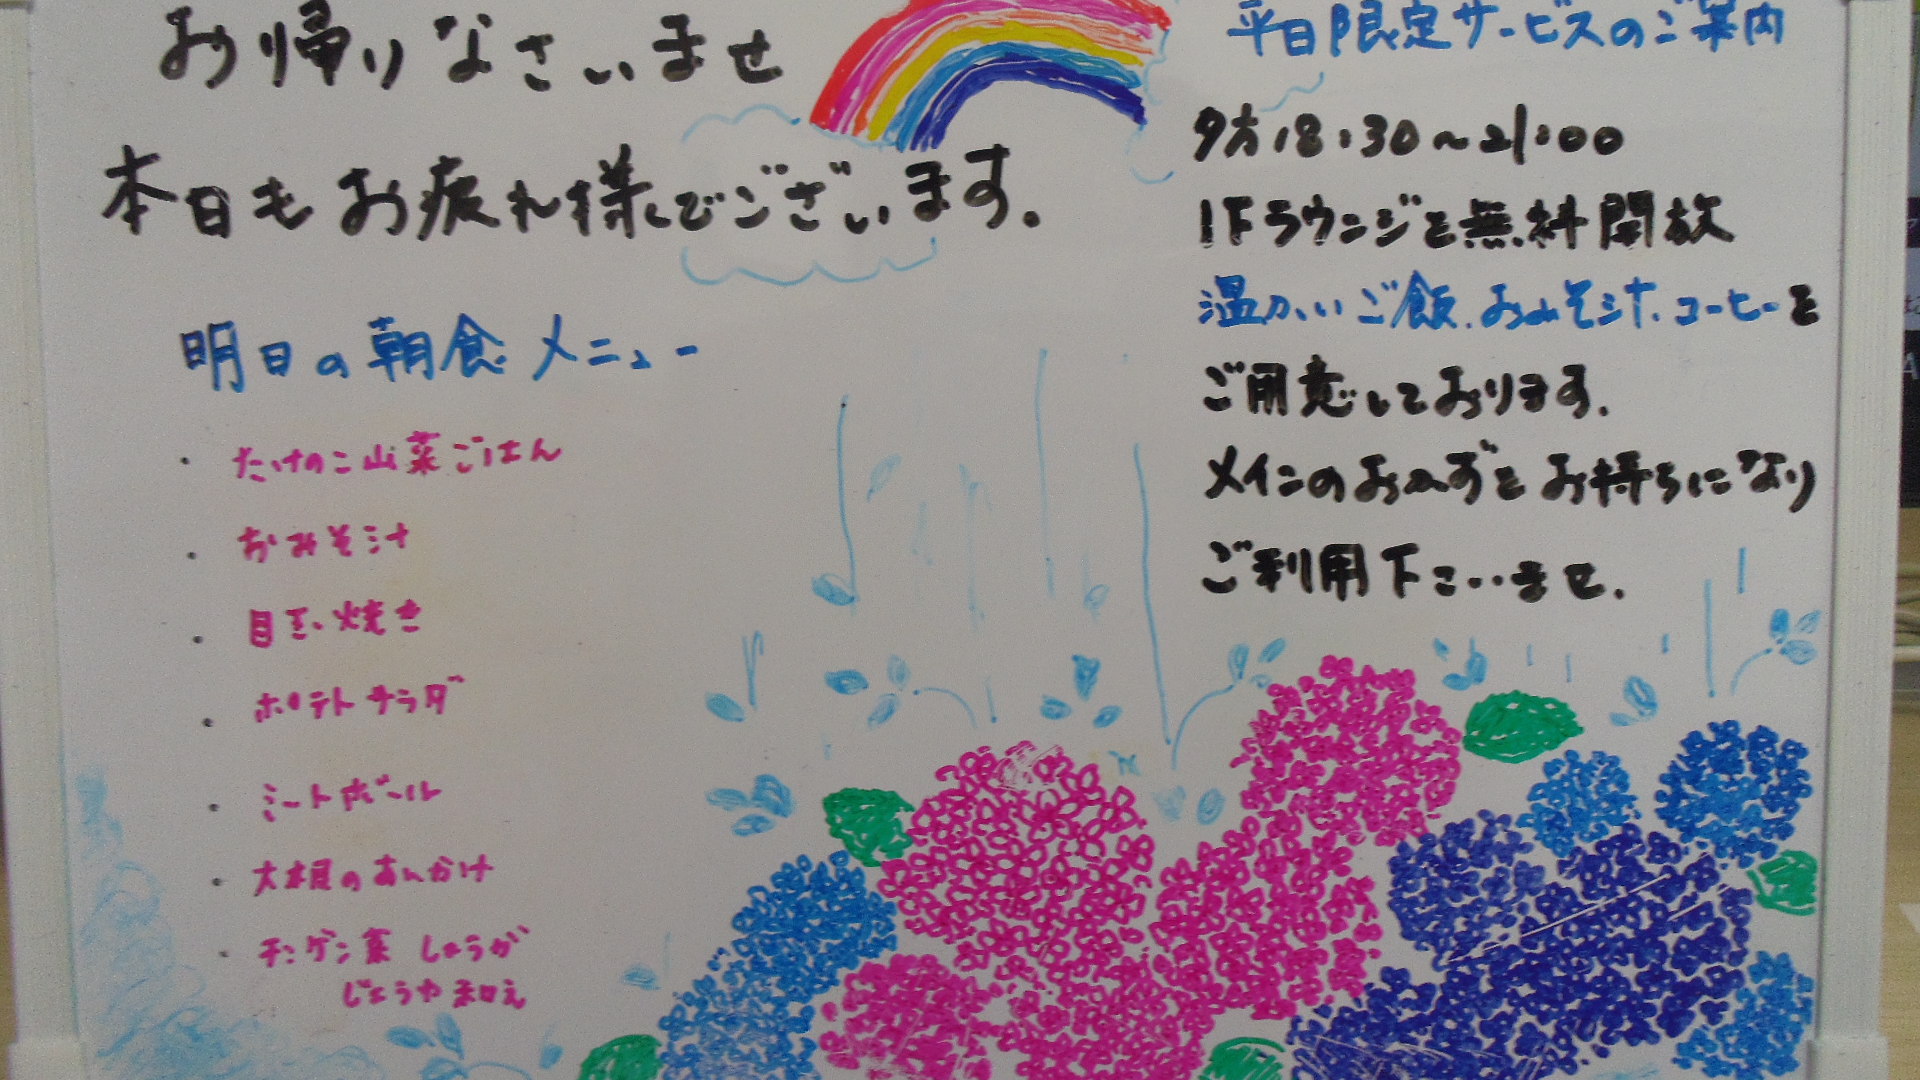 お帰りなさいませ
本日もお疲れ様でございます。
明日の朝食メニュー
・たけのこ山菜ごはん
・おみそ汁
・目玉焼き
・ポテトサラダ
・ミートボール
・大根のあんかけ
・チンゲン菜 しょうが
じょうゆ和え
平日限定サービスのご案内
夕方18:30〜21:00
1Fラウンジを無料開放
温かいご飯、おみそ汁、コーヒーを
ご用意しております。
メインのおかずをお持ちになり
ご利用下さいませ。